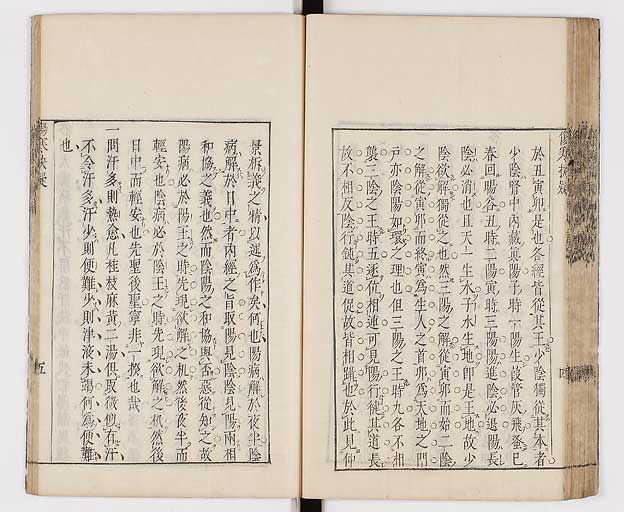 於丑寅卯是也各經皆從其王少陰獨從其本者
少陰腎中內藏眞陽子時一陽生葭管灰飛蚤已
春回暘谷丑時二陽寅時三陽陽進陰必退陽長
陰必消也且天一生水子水生地即是王地故少
陰欲解獨從之也然三陽之解從寅卯而始三陰
之解從寅卯而終寅爲生人之首卯爲天地之門
戶亦陰陽如環之理也但三陽之王時九各不相
襲三陰之王時五逐位相連可見陽行健其道長
故不相及陰行鈍其道促故皆相躡也於此見仲
景析義之精以述爲作矣何也陽病解於夜半陰
病解於日中者內經之旨取陽見陰陰見陽兩相
和協之義也然而陰陽之和協與否惡從知之故
陽病必於陽王之時先現欲解之机然後夜半而
輕安也陰病必於陰王之時先現欲解之机然後
日中而輕安也先聖後聖寧非一揆也哉
一問汗多則熱愈凡桂枝麻黃二湯俱取微似有汗
不令汗多汗少則便難少則津液未竭何爲便難
也
傷寒抉疑
五